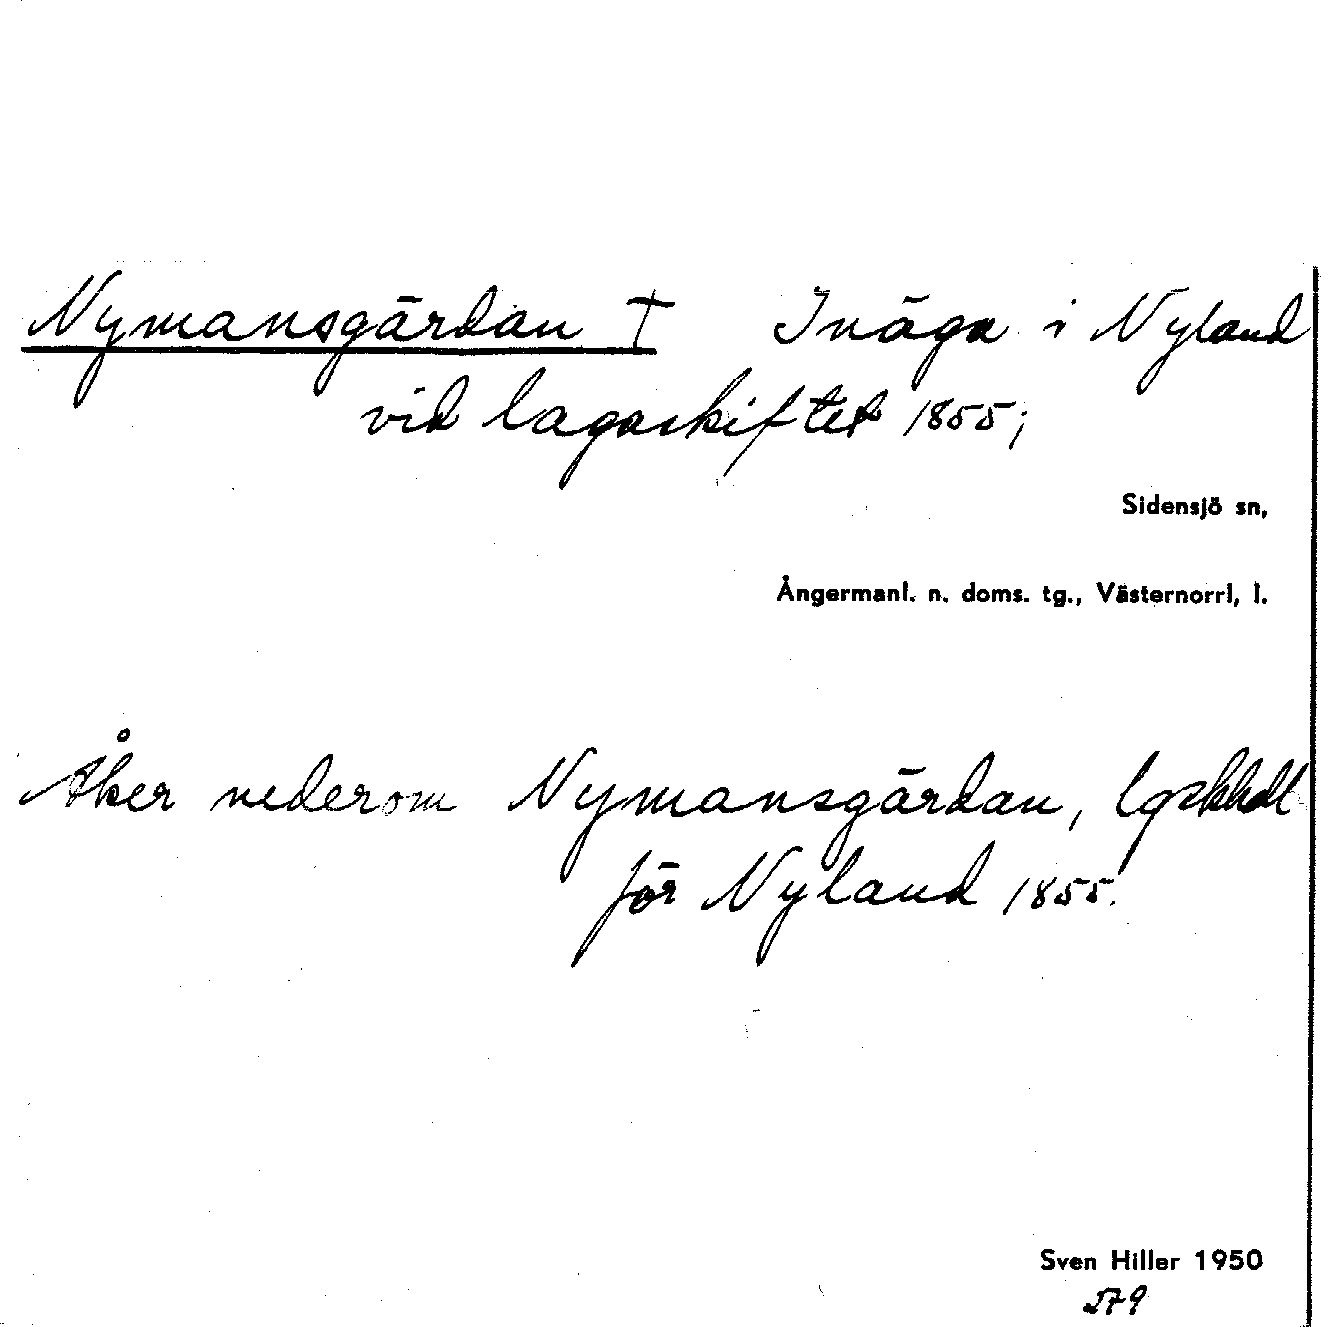 Nymansgärdan † Inäga i Nyland
vid lagaskiftet 1855;
Sidensjö sn,
Ångermanl. n. doms. tg., Västernorrl, l.
Åker nederom Nymansgärdan, lgskhdl
för Nyland 1855.
Sven Hiller 1950
579